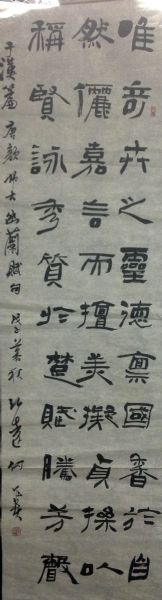 唯奇卉之靈德禀國香於自
然儷嘉言而擅美擬貞操以
稱賢詠秀質於楚賦騰芳聲
于漢篇 唐顏師古幽蘭賦句 戊子暮秋